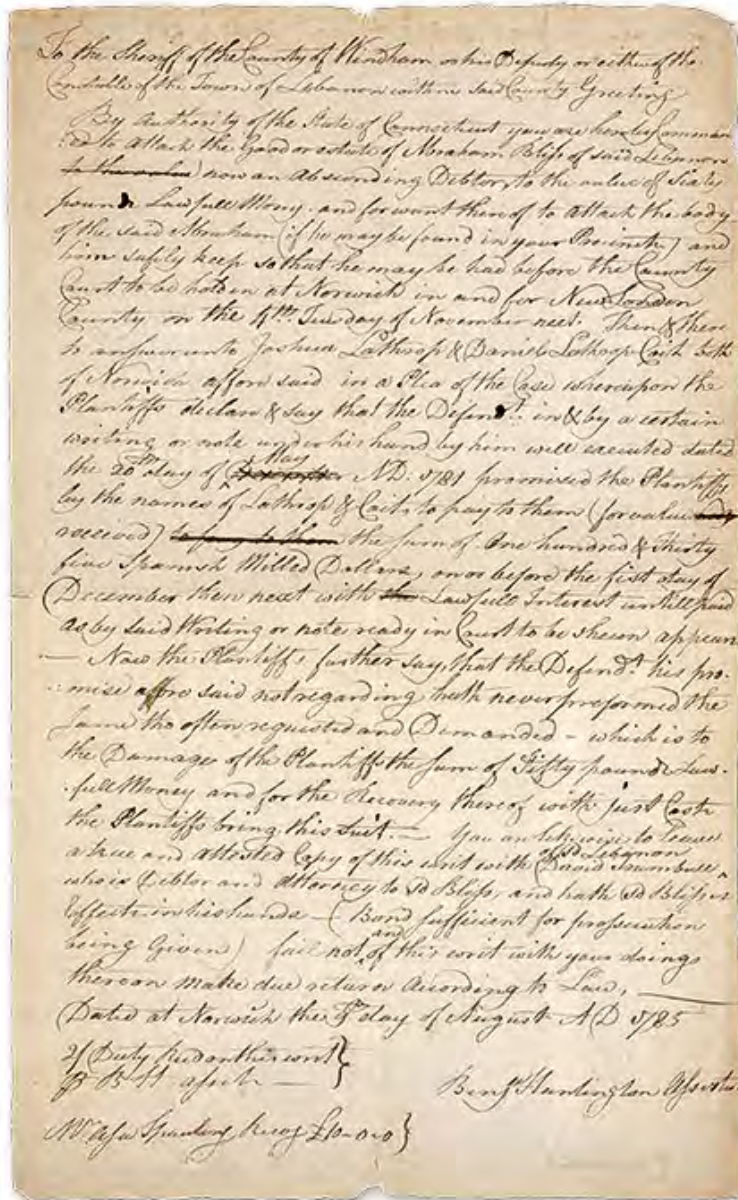 To the Sheriff of the County of Windham or his Deputy or either of the
Constables of the Town of Lebanon within said County Greeting
By Authority of the State of Connecticut you are hereby Comman
:ed to Attach the Good or estate of Abraham Bliss of said Lebanon
now an Absconding Debtor, to the value of Sixty
pound Lawfull Mony. and for want thereof to Attach the body
of the said Abraham (if he may be found in your Precincts) and
him safely keep so that he may be had before the County
Court to be holden at Norwich in and for New London
County on the 4th Tuesday of November next. Then & there
to answer unto Joshua Lathrop & Daniel Lathrop Coit both
of Norwich affore said in a Plea of the Case whereupon the
Plantiffs declare & say that the Defendt. in & by a certain
writing or note under his hand by him well executed dated
May
the 20th day of AD. 1781 promised the Plantiffs
by the names of Lathrop & Coit, to pay to them (for value
received) to pay to them the sum of One hundred & thirty
five Spanish Milled Dollars, on or before the first day of
December then next with the Lawfull Interest untill paid
as by said Writing or note ready in Court to be shewn appears
Now the Plantiffs further say, that the Defendt. his pro-
:mise affore said not regarding hath never preformed the
same tho often requested and Demanded - which is to
the Damage of the Plantiffs the sum of Fifty pounds Law-
full Money and for the Recovery thereof with just Costs
the Plantiffs bring this Suit. — You are likewise to leave
of sd Lebanon
a true and attested Copy of this writ with David Trumbull
who is Debtor and Attorney to sd Bliss, and hath sd Bliss's
Effects in his hands — (Bond sufficient for prossecution
and
being Given) fail not, of this writ with your doings
thereon make due return According to Law,
Dated at Norwich the day of August AD 1785
2/ Duty on this writ }
Benjn Huntington Assistt
Mr Asa Spaulding Recog £10-0-0 }